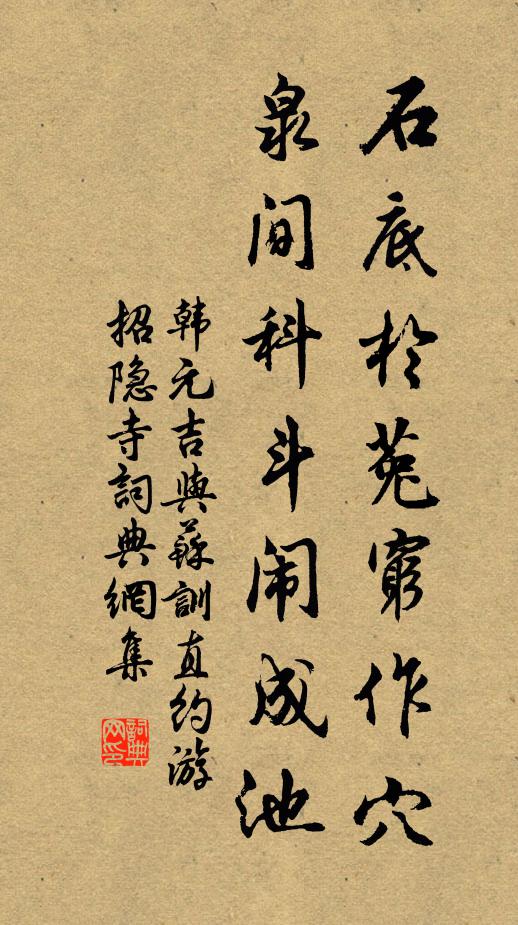 石底於菟窮作穴
泉间科斗闹成池
韩元吉與蘇訓直约游
招隐寺詞典網集
詞典網印